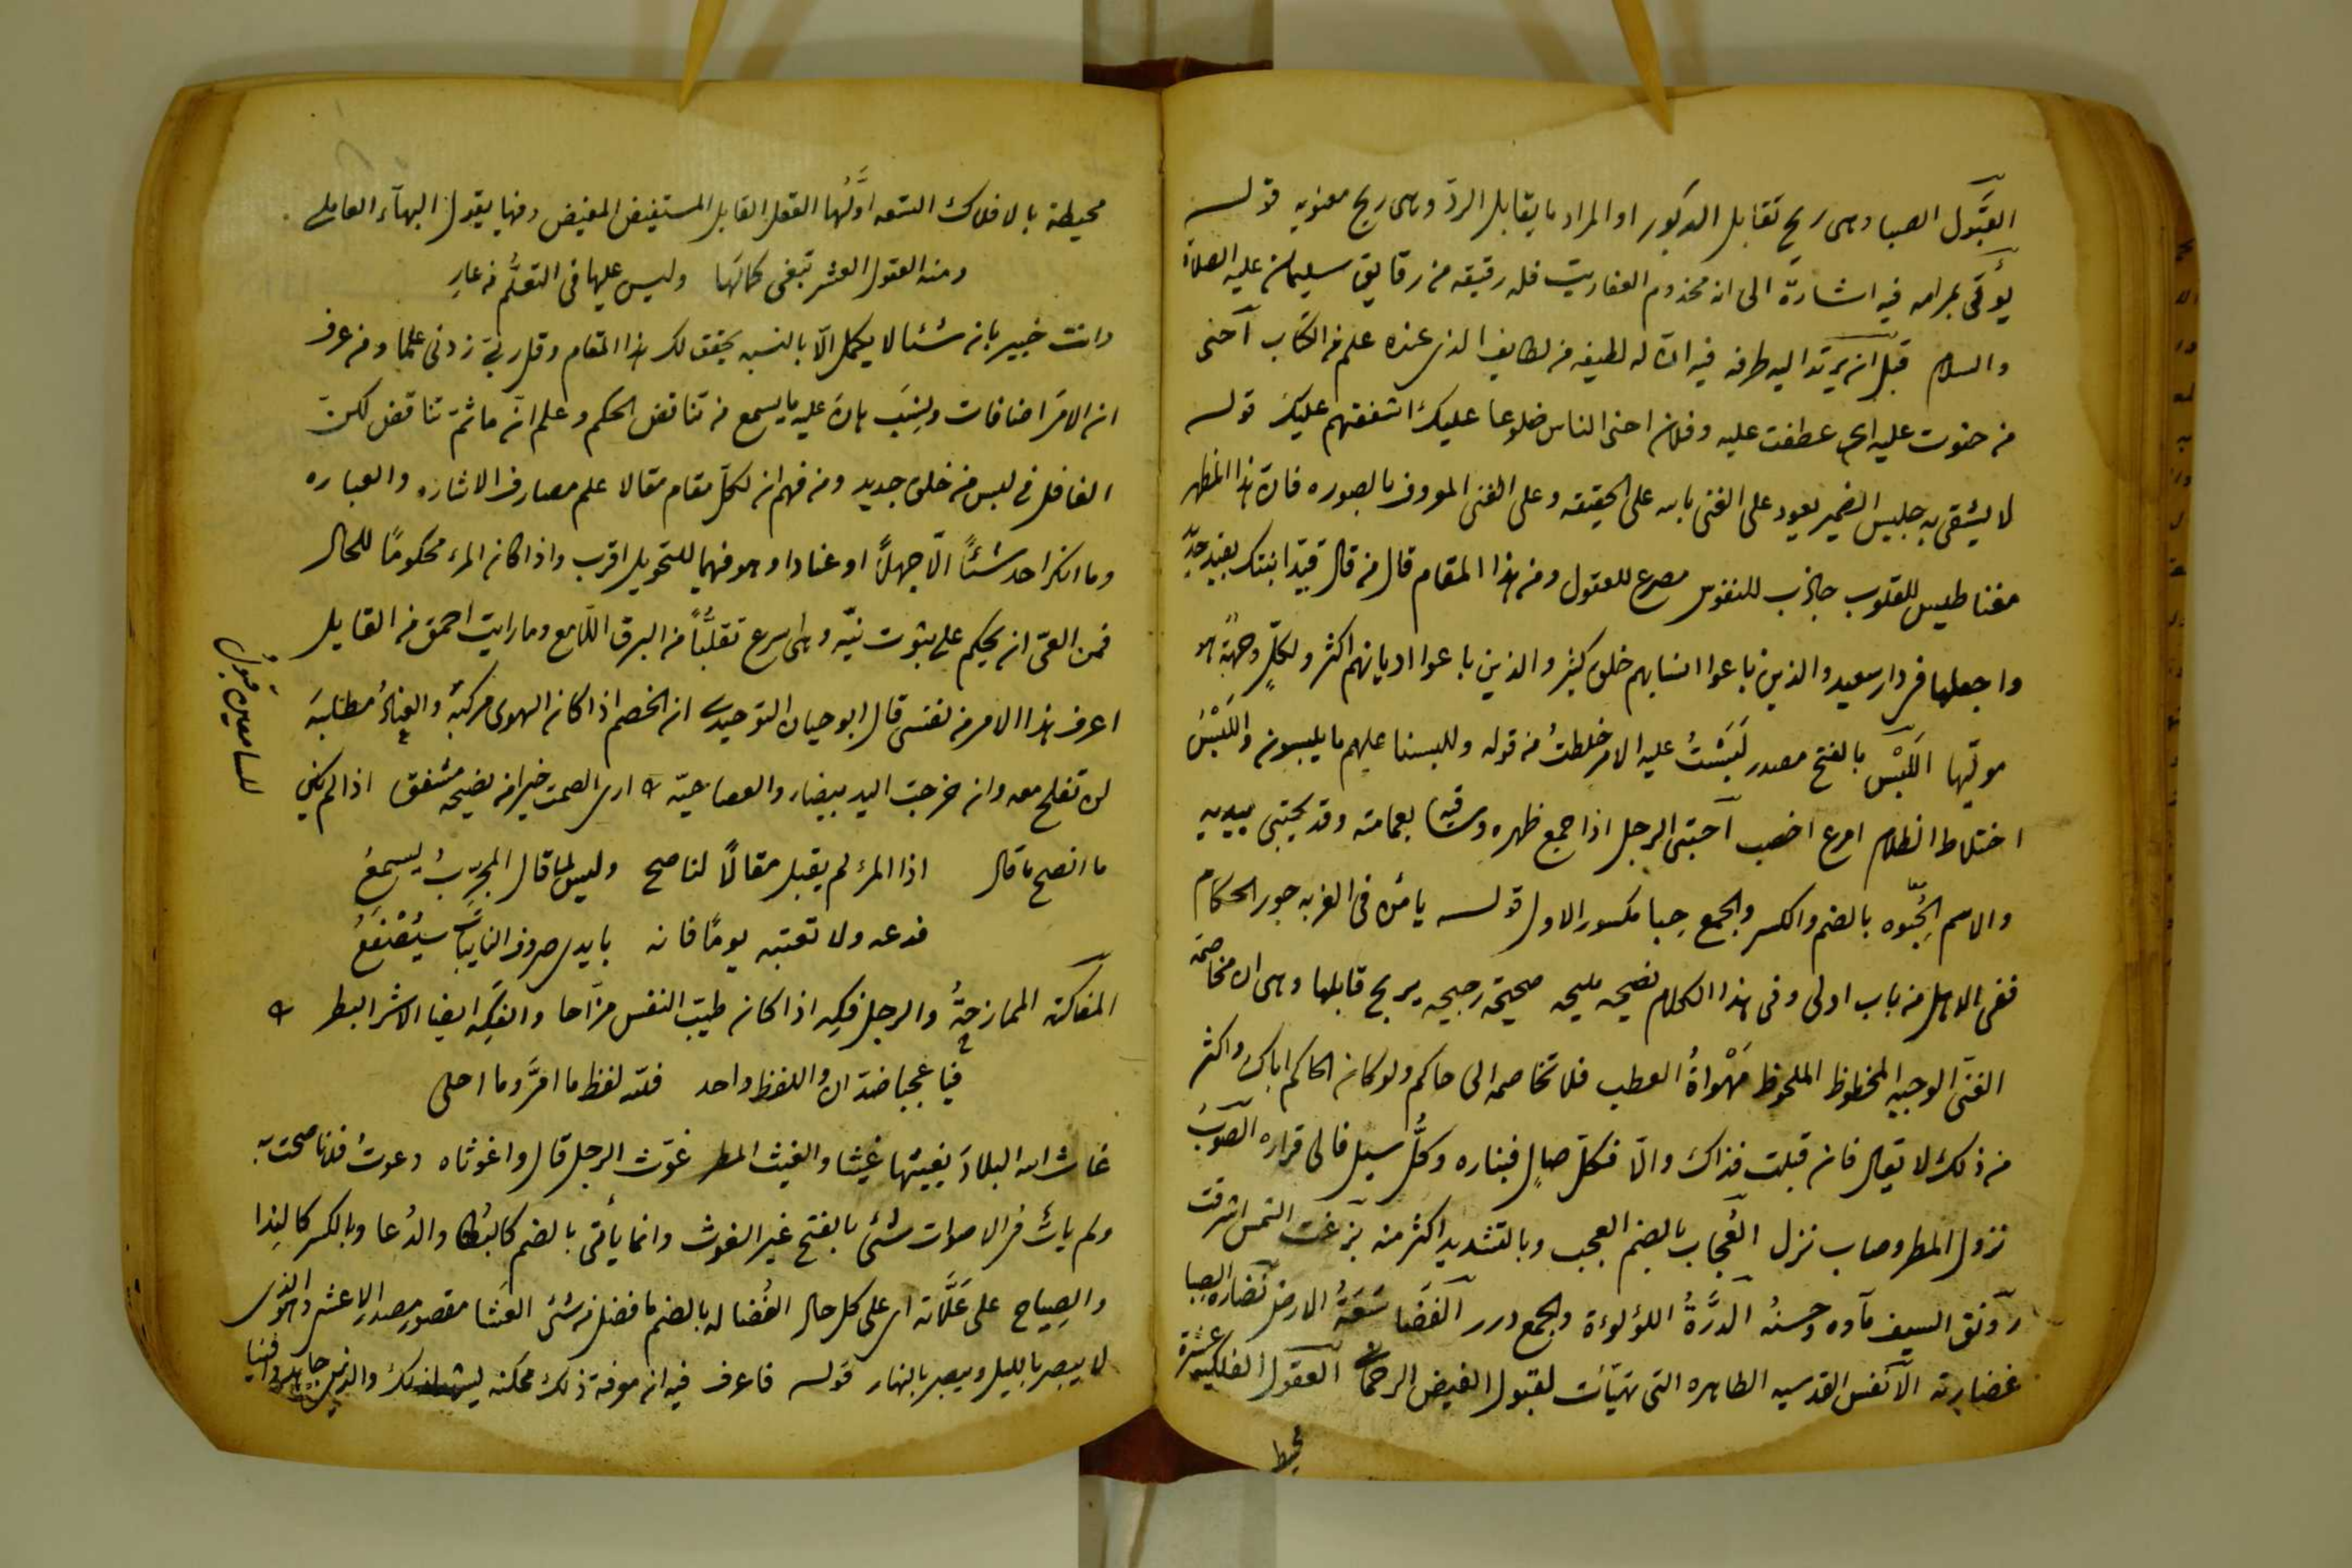 القبول الصبا وهى ريح تقابل الدبور او المراد ما يقابل الردّ وهى ريح معنويه قوله
يؤتى بمرامه فيه اشارة الى انه مخذوم العفاريت فله رقيقه من رقايق سليمان عليه الصلاة
والسلام قبل ان يرتد اليه طرفه فيه ان له لطيفه من لطايف الذى عنده علم من الكتاب احنى
من حنوت عليه اى عطفت عليه وفلان احنى الناس ضلوعا عليك اشفقهم عليك قوله
لا يشقى به جليس الضمير يعود على الغنى بالله على الحقيقه وعلى الغنى المعروف بالصوره فان هذا المظهر
مغناطيس للقلوب جاذب للنفوس مصرع للعقول ومن هذا المقام قال من قال قيّد ابنتك بقيد جدّ
واجعلها فى دار سعيد والذين باعوا انسابهم خلق كثير والذين باعوا اديانهم اكثر ولكلٍّ وجهةٌ هو
مولّيها اللَبْس بالفتح مصدر لَبَسْتُ عليه الامر خلطتُ من قوله وللبسنا عليهم ما يلبسون واللَبْسُ
اختلاط الظلام امرع اخصب احتبى الرجل اذا جمع ظهره وساقيه بعمامته وقد يحتبى بيديه
والاسم الحُِبوه بالضم والكسر والجمع حِبا مكسور الاول قوله يأمن فى الغربه جور الحكام
ففى الاهل من باب اولى وفى هذا الكلام نصيحه مليحه صحيحة رجيحه يربح قابلها وهى ان مخاصمة
الغنى الوجيه المحظوظ الملحوظ مَهْواةُ العطب فلا تخاصمه الى حاكم ولو كان الحاكم اباك واكثر
من ذلك لا يقال فان قبلت فذاك والّا فكلّ صالٍ فبناره وكلُّ سيل فالى قراره الصوبُ
نزول المطر وصاب نزل العُجاب بالضم العجب وبالتشديد اكثر منه بزغت الشمس اشرقت
رونق السيف مآوه وحسنه الدرَّةُ اللؤلوءة والجمع درر الفضا سَعَةُ الارض نضارة الصبا
غضارته الانفس القدسيه الطاهره التى تهيّأت لقبول الفيض الرحمانى العقول الفلكيه عشرة
محيط
محيطة بالافلاك التسعه اوَّلُها العقل القابل المستفيض المفيض وفيها يقول البهآء العاملى
ومنه العقول العشر تبغى كمالها وليس عليها فى التعلُّم من عارِ
وانت خبير بانه شئا لا يكمل الّا بالنسبه يحقق لك هذا المقام وقل ربّ زدنى علما ومن عرف
ان الامر اضافات ونِسَب هان عليه ما يسمع من تناقض الحكم وعلم انّه ما ثمّ تناقض لكنّ
الغافل فى لبس من خلق جديد ومن فهم ان لكلّ مقام مقالا علم مصارف الاشاره والعباره
وما انكر احد شئًا الّا جهلًا او عنادا وهو فيهما للتحويل اقرب واذا كان المرء محكومًا للحال
فمن الغىّ ان يحكم على ثبوت نيّه وهى اسرع تقلّبًا من البرق اللّامع وما رايت احمق من القايل
اعرف هذا الامر من نفسى قال ابو حيان التوحيدى ان الخصم اذا كان الهوى مركبَهُ والعنادُ مطلبَه
لن تفلح معه وان خرجت اليد بيضاء والعصا حيّه ارى الصمت خيرا من نصيحه مشفق اذا لم يكن
للسامعين قبولُ
ما انصح ما قال اذا المرءُ لم يقبل مقالًا لناصح وليس لما قال المجرّبُ يسمعُ
فدعه ولا تعتبه يومًا فانه بايدى صروف النايبات سيُصْفَعُ
المفاكهة الممازحةُ والرجل فكِه اذا كان طيّب النفس مزّاحا والفكِه ايضا الاشر البطر
فيا عجبا ضدّان واللفظ واحد فلله لفظ ما امَرَّ وما احلى
غاث الله البلادَ يغيثها غيثا والغيث المطر غوّث الرجل قال واغوثاه دعوتُ فلانا صحت به
ولم يأت فى الاصوات شئ بالفتح غير الغوث وانما يأتى بالضم كالبُكا والدُعا وبالكسر كالنِدا
والصِياح على عَلّاته اى على كل حال الفُضاله بالضم ما فضل من شئ العَشا مقصور مصدر الاعشى وهو الذى
لا يبصر بالليل ويبصر بالنهار قوله فاعرف فيه ان معرفة ذلك ممكنه ليشهد لذلك والذين جاهدوا فينا